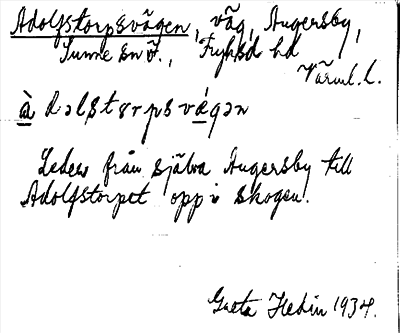 Adolfstorpsvägen, väg, Augersby,
Sunne sn ö., Fryksd hd
Värml. l.
à dəlstɤrpsvǽgən
Leder från själva Augersby till
Adolfstorpet opp i skogen.
Greta Hedin 1934.